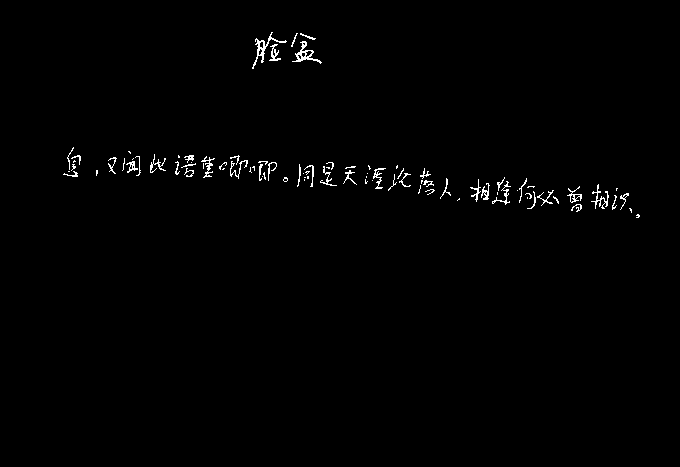 脸盆
息,又闻此语重唧唧。同是天涯沦落人,相逢何必曾相识。